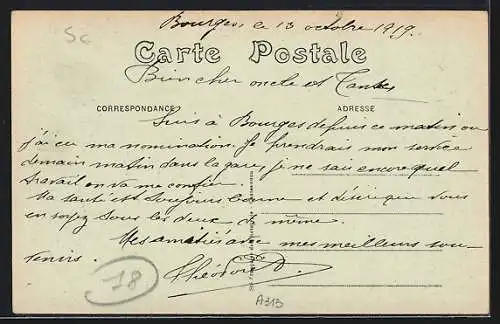 Bourges le 13 octobre 1919.
5c
Carte Postale
Bien cher oncle et Tantes
CORRESPONDANCE
ADRESSE
Suis à Bourges depuis ce matin ou
j'ai eu ma nomination. Je prendrais mon service
demain matin dans la gare, je ne sais encore quel
travail on va me confier.
Ma santé est toujours bonne et désire que vous
en soyez tous les deux de même.
Mes amitiés avec mes meilleurs sou-
venirs.
Théodore
18
A313